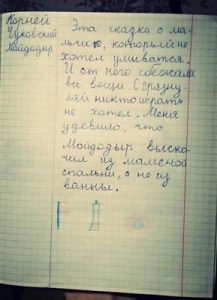 Корней
Чуковский
Мойдодыр
Эта скадка о ма-
льчике, который не
хотел умыватся.
И от него сбежали
все вещи. С грязну-
ляй никто играть
не хотел. Меня
удевило, что
Мойдодыр выско-
чил из мамсной
спальни, а не из
ванны.